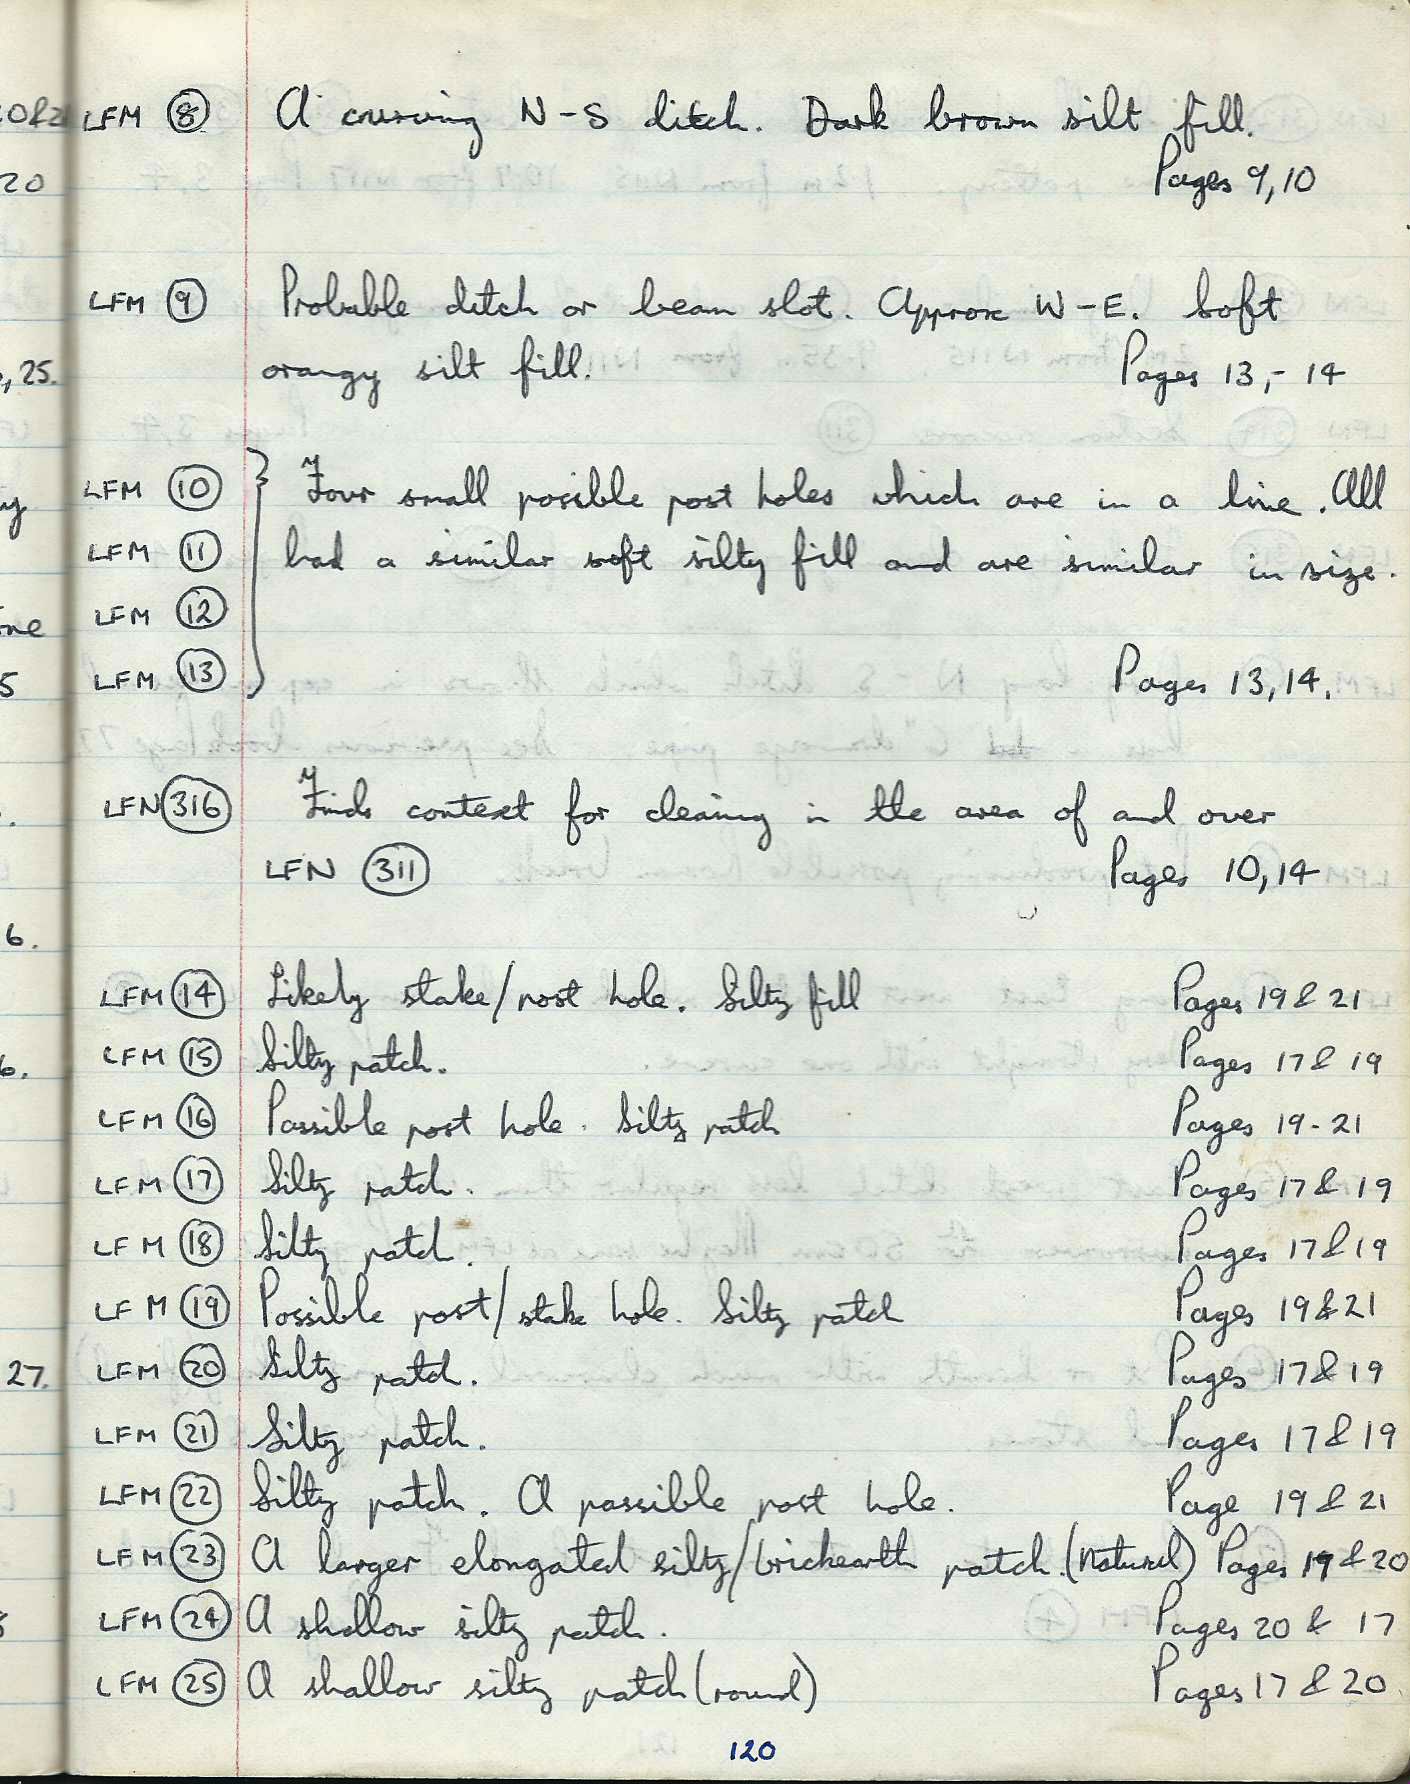 LFM 8 A curving N-S ditch. Dark brown silt fill.
Pages 9,10
LFM 9 Probable ditch or beam slot. Approx W-E. Soft
orangy silt fill. Pages 13,-14
LFM 10 } Four small possible post holes which are in a line. All
LFM 11 had a similar soft silty fill and are similar in size.
LFM 12
LFM 13 Pages 13,14.
LFN 316 Finds context for cleaning in the area of and over
LFN 311 Pages 10,14
LFM 14 Likely stake/post hole. Silty fill Pages 19 & 21
LFM 15 Silty patch. Pages 17 & 19
LFM 16 Possible post hole. Silty patch Pages 19-21
LFM 17 Silty patch. Pages 17 & 19
LFM 18 Silty patch. Pages 17 & 19
LFM 19 Possible post/stake hole. Silty patch Pages 19 & 21
LFM 20 Silty patch. Pages 17 & 19
LFM 21 Silty patch. Pages 17 & 19
LFM 22 Silty patch. A possible post hole. Page 19 & 21
LFM 23 A larger elongated silty/brickearth patch.(Natural) Pages 19 & 20
LFM 24 A shallow silty patch. Pages 20 & 17
LFM 25 A shallow silty patch (round) Pages 17 & 20
120